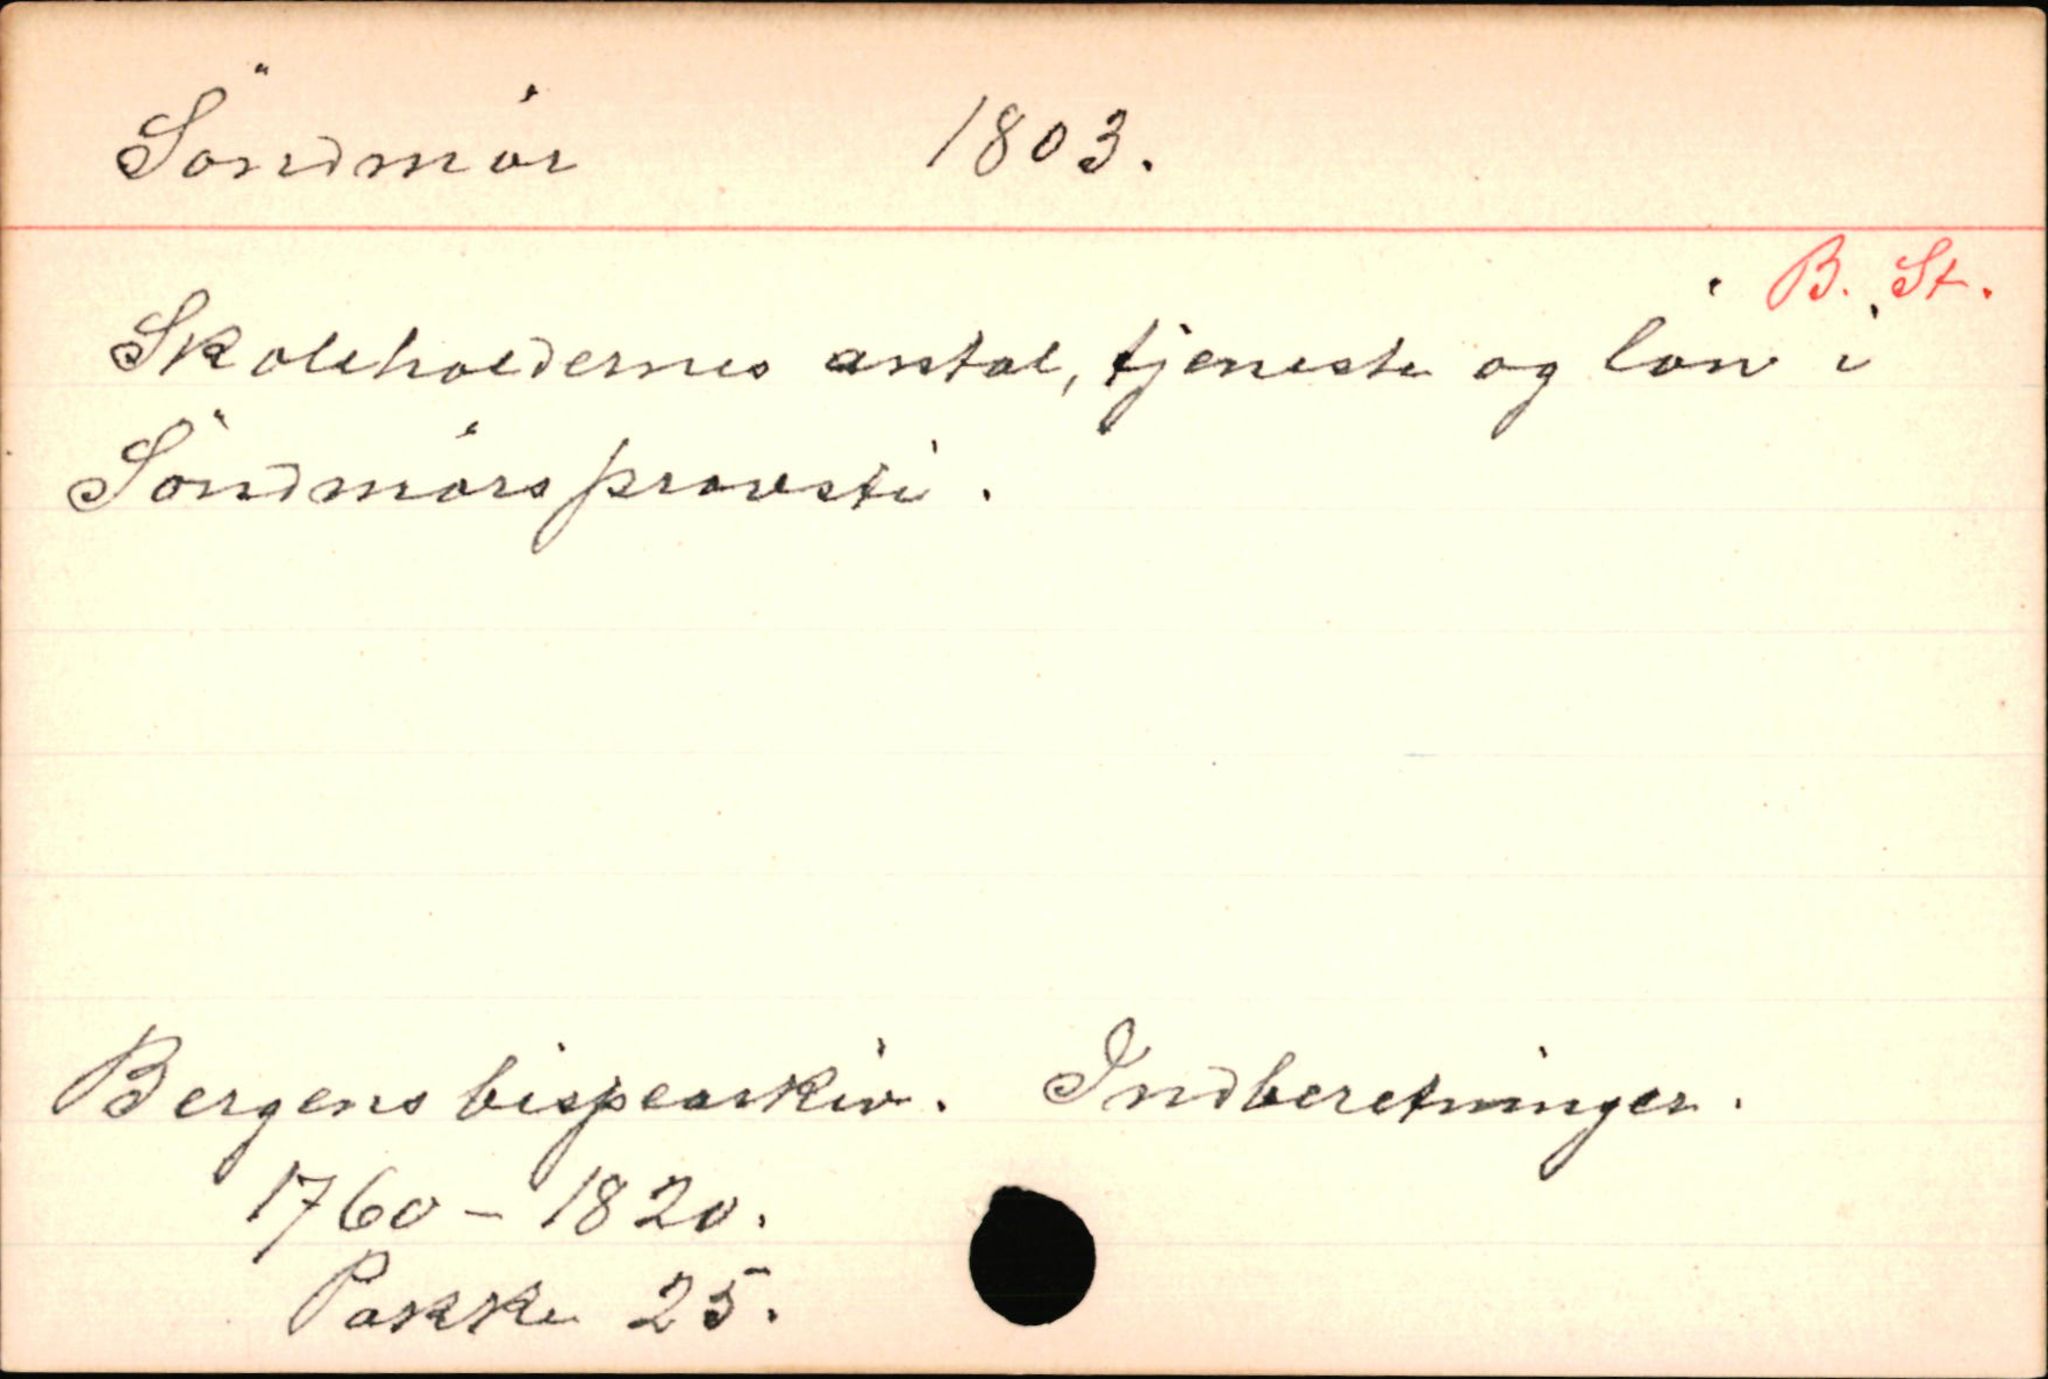 Söndmör 1803.
B. St.
Skoleholdernes antal, tjeneste og lön i
Söndmörs provsti.
Bergens bispearkiv. Indberetninger.
1760 - 1820.
Pakke 25.